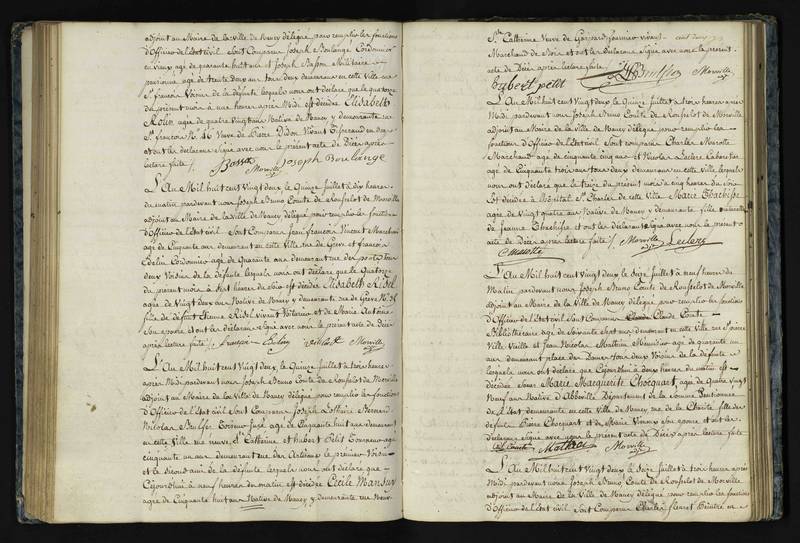 adjoint au Maire de la ville de Nancy délégué pour remplir les fonctions
d'Officier de l'état civil Sont Comparus Joseph Boulange, Cordonnier
en vieux agé de quarante huit ans et Joseph Basson Militaire
pensionné agé de trente deux ans tous deux demeurans en cette Ville rue
St françois Voisins de la défunte lesquels nous ont déclaré que le quatorze
du présent mois à une heure après Midi est décédée Elisabeth
Rolin agée de quatre vingt ans Native de Nancy y demeurante rue
St françois N. 46 Veuve de Pierre Didon Vivant
et ont les déclarans Signé avec nous le présent acte de Décès après
lecture faite
Joseph Boulange
Morville
L'An Mil huit cent Vingt deux le Quinze Juillet à dix heures
du matin pardevant nous Joseph Bruno Comte de Rouselot de Morville
adjoint au Maire de la Ville de Nancy délégué pour remplir les fonctions
d'Officier de l'état civil Sont Comparus Jean françois Vincent Marchand
agé de Cinquante ans demeurant en cette Ville rue de Grève et françois
Cordonnier agé de quarante ans demeurant rue des
deux Voisins de la défunte lesquels nous ont déclaré que le Quatorze
du présent mois à Sept heures du Soir est décédée Elisabeth Ridel
agée de Vingt deux ans Native de Nancy y demeurante rue de Grève N.
fille de défunt Etienne Ridel vivant et de Marie Antoine
Son épouse et ont les déclarans Signé avec nous le présent acte de Décès
après lecture faite
Morville
L'An Mil huit cent Vingt deux, le Quinze Juillet à trois heures
après Midi pardevant nous Joseph Bruno Comte de Rouselot de Morville
adjoint au Maire de la Ville de Nancy délégué pour remplir les fonctions
d'Officier de l'état civil Sont Comparus Joseph
Nicolas agé de Cinquante huit ans demeurant
en cette Ville rue neuve St Catherine et hubert Petit agé
cinquante un ans demeurant rue des Artisans le premier Voisin
et le Second ami de la défunte lesquels nous ont déclaré que
Cejourdhui à neuf heures du matin est décédée Cécile Mansuy
agée de Cinquante huit ans Native de Nancy, y demeurante rue Neuve
Ste Catherine Veuve de Gaspard fournier vivant
Marchand de Bois et ont les déclarans Signé avec nous le présent
acte de Décès après lecture faite
hubert petit
Morville
L'An Mil huit cent Vingt deux le Quinze Juillet à trois heures après
Midi pardevant nous Joseph Bruno Comte de Rouselot de Morville
adjoint au Maire de la Ville de Nancy délégué pour remplir les
fonctions d'Officier de l'état civil Sont comparus Charles Marotte
Marchand agé de cinquante cinq ans et Nicolas Leclerc
agé de Cinquante trois ans tous deux demeurans en cette Ville lesquels
nous ont déclaré que le treize du présent mois à cinq heures du Soir
est décédée à l'hôpital St. Charles de cette Ville Marie
agée de Vingt quatre ans Native de Nancy y demeurante fille naturelle
de Jeanne et ont les déclarans Signé avec nous le présent
acte de Décès après lecture faite
Marotte
Morville
Leclerc
L'An Mil huit cent Vingt deux le Seize Juillet à neuf heures du
Matin pardevant nous Joseph Bruno Comte de Rouselot de Morville
adjoint au Maire de la Ville de Nancy délégué pour remplir les fonctions
d'Officier de l'état civil Sont Comparus Claude Comte
Bibliothécaire agé de Soixante Sept ans demeurant en cette Ville rue
Ville Vieille et Jean Nicolas Mathieu Menuisier agé de quarante un
ans demeurant place des Dames tous deux Voisins de la défunte
lesquels nous ont déclaré que Cejourdhui à deux heures du matin est
décédée Dame Marie Marguerite Chocquart, agée de Quatre Vingt
Neuf ans Native d'Abbeville Département de la Somme Pensionnée
de l'Etat demeurante en cette Ville de Nancy, rue de la Charité fille des
défunts Pierre Chocquart et de Marie Son épouse et ont les
déclarans Signé avec nous le présent acte de Décès après lecture faite
Mathieu
Morville
L'An Mil huit cent Vingt deux le Seize Juillet à trois heures après
Midi pardevant nous Joseph Bruno Comte de Rouselot de Morville
adjoint au Maire de la Ville de Nancy délégué pour remplir les fonctions
d'Officier de l'état civil Sont Comparus Charles fleuret Peintre en